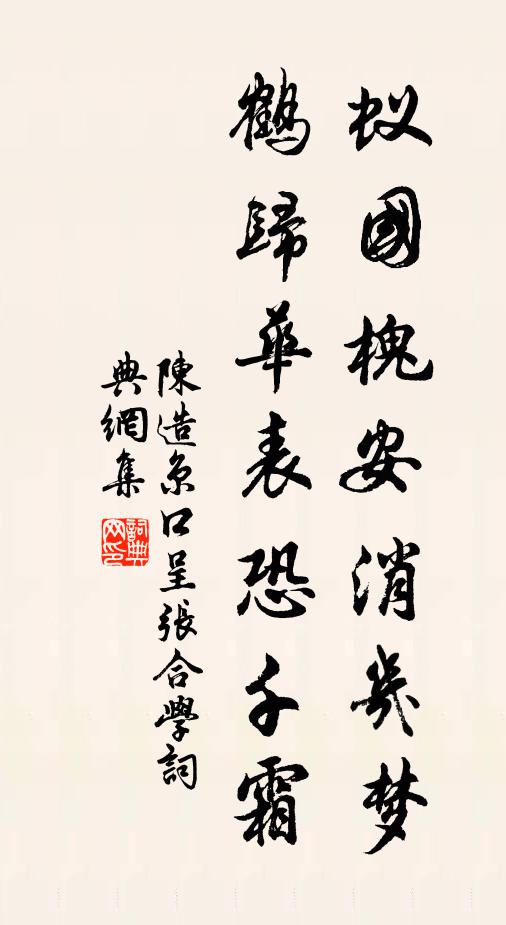 蚁國槐安消幾梦
鶴歸華表恐千霜
陳造京口呈張合學詞
典網集
詞典网印